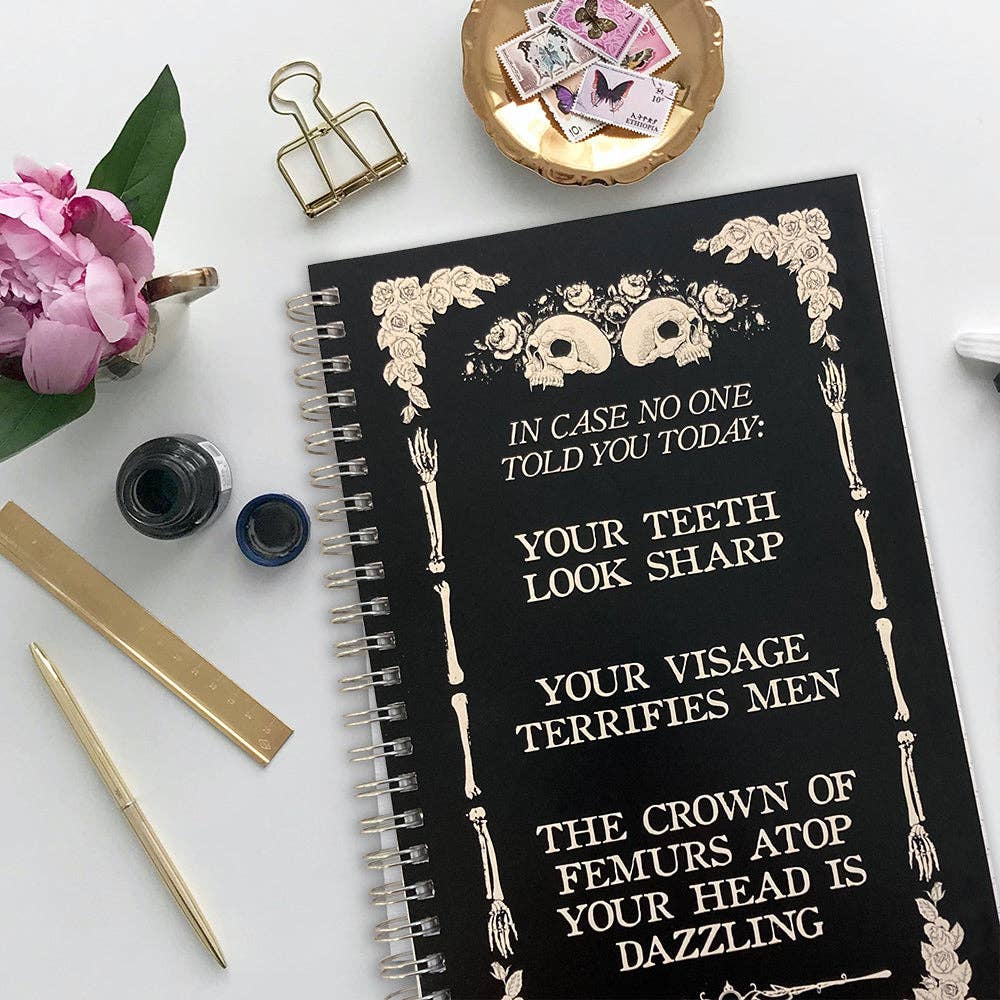 10c
ኢትዮጵያ
ETHIOPIA
IN CASE NO ONE
TOLD YOU TODAY:
YOUR TEETH
LOOK SHARP
YOUR VISAGE
TERRIFIES MEN
THE CROWN OF
FEMURS ATOP
YOUR HEAD IS
DAZZLING